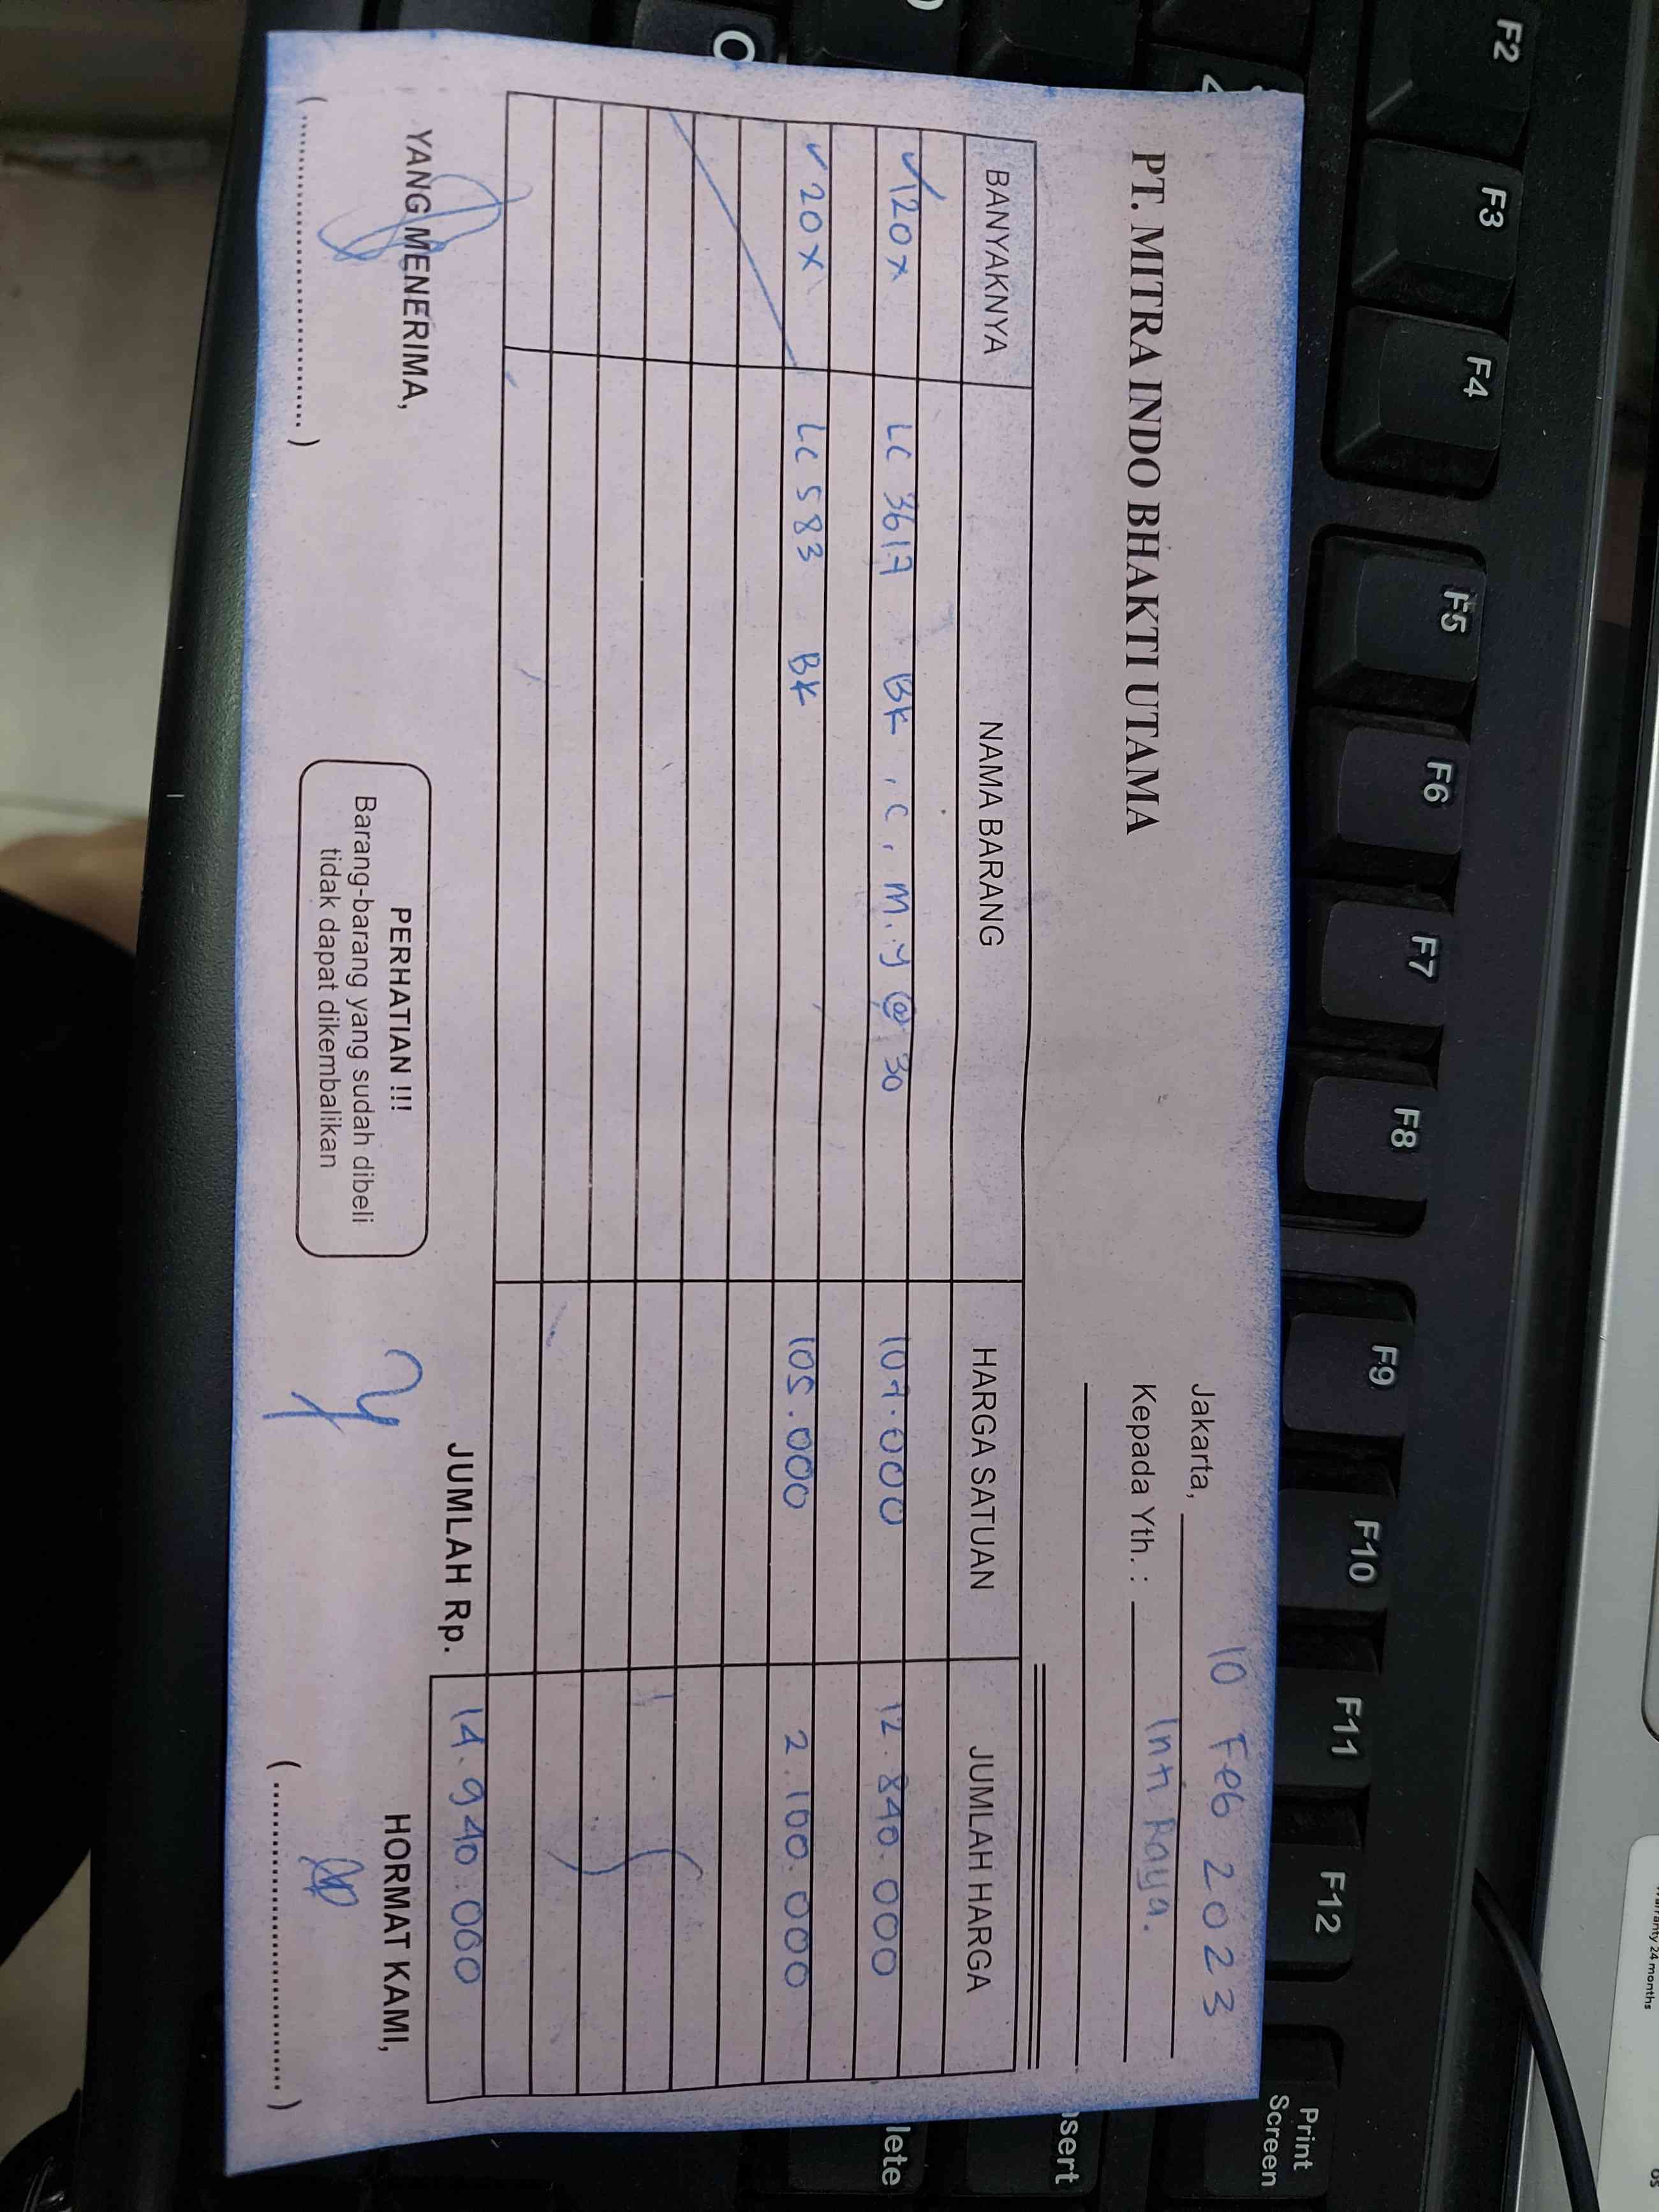 PT. MITRA INDO BHAKTI UTAMA
Jakarta, 10 Feb 2023
Kepada Yth. : Inti Raya.
BANYAKNYA NAMA BARANG HARGA SATUAN JUMLAH HARGA
✓120x LC 3617 BK, C, M, Y @ 30 107.000 12.840.000
✓20x LC 583 BK 105.000 2.100.000
JUMLAH Rp. 14.940.000
YANG MENERIMA,
(..............................)
PERHATIAN !!!
Barang-barang yang sudah dibeli
tidak dapat dikembalikan
HORMAT KAMI,
(..............................)
F2
F3
F4
F5
F6
F7
F8
F9
F10
F11
F12
Print
Screen
nsert
lete
O
Z
warranty 24 months